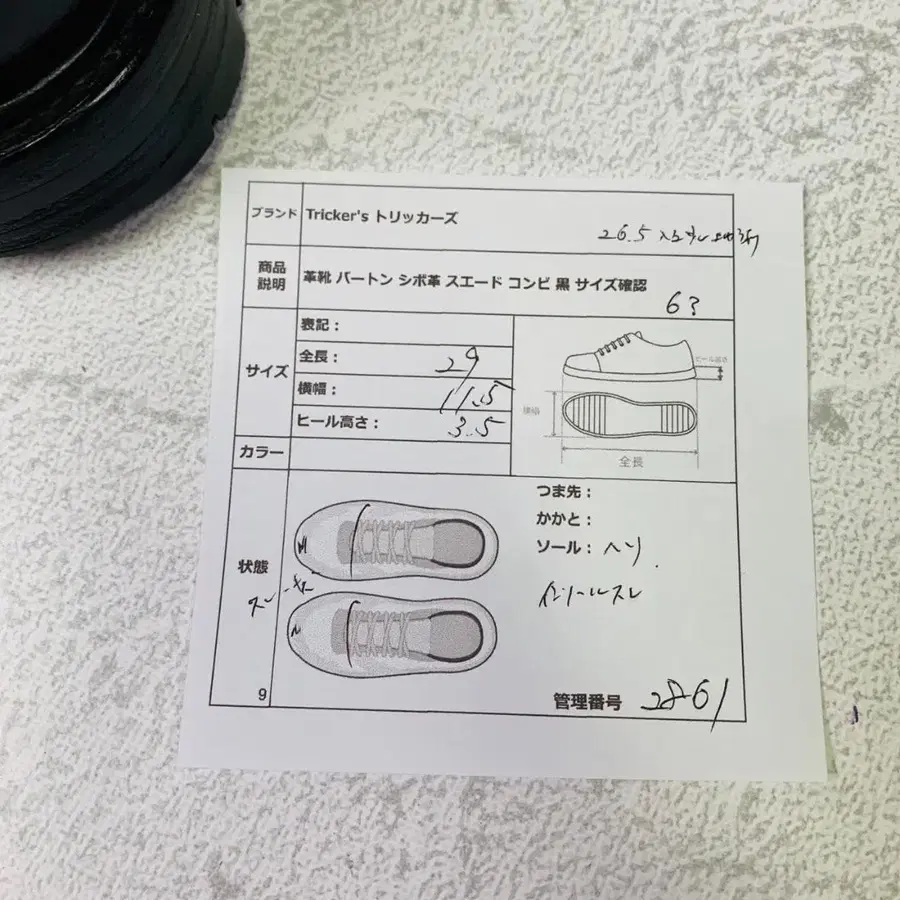 ブランド Tricker's トリッカーズ
26.5
商品説明 革靴 バートン シボ革 スエード コンビ 黒 サイズ確認
6?
サイズ
表記：
全長： 29
横幅： 11.5
ヒール高さ： 3.5
ヒール高さ
横幅
全長
カラー
状態
つま先：
かかと：
ソール： ヘリ
インソールスレ
9
管理番号 2861